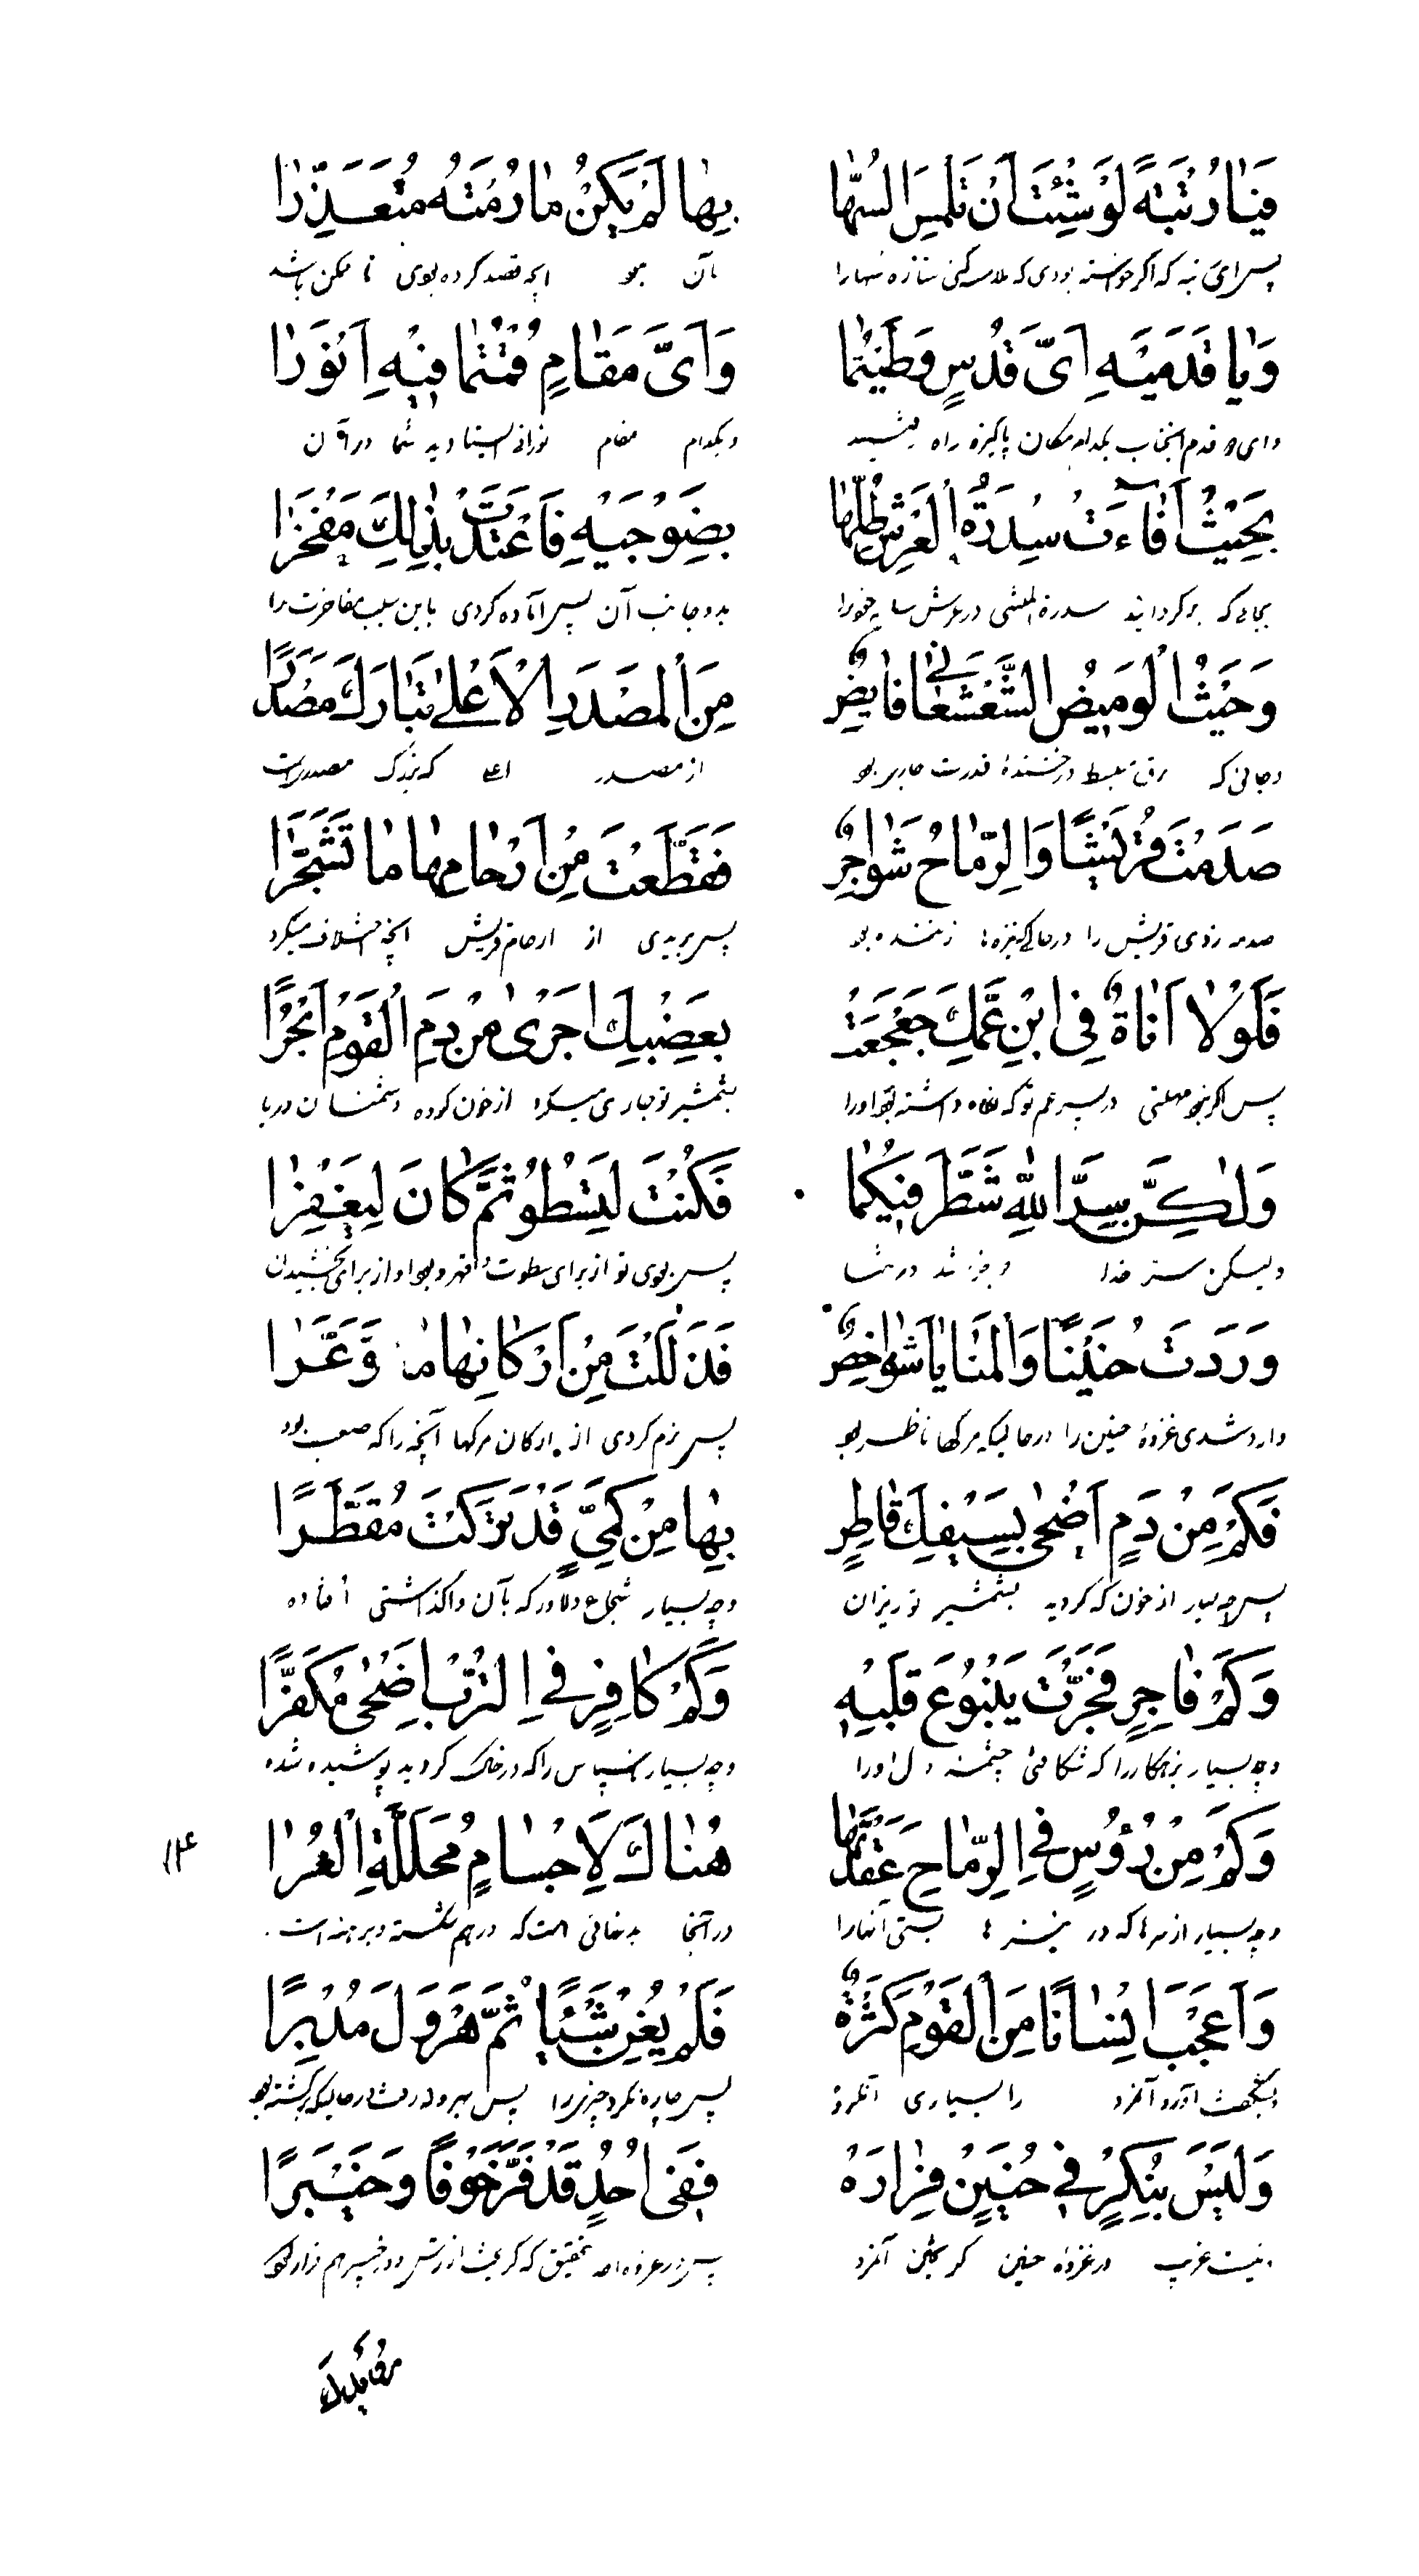 فَيَا رُتْبَةً لَوْ شِئْتَ أَنْ تَلْمِسَ السُّهَا بِهَا لَمْ يَكُنْ مَا رُمْتَهُ مُتَعَذِّرَا
پس ای رتبه که اگر خواسته بودی که ملامسه کنی ستاره سها را بآن نبود آنچه قصد کرده بودی نا ممکن باشد
وَيَا قَدَمَيْهِ أَيَّ قُدْسٍ وَطِئْتُمَا وَأَيَّ مَقَامٍ قُمْتُمَا فِيهِ أَنْوَرَا
و ای دو قدم آنجناب بکدام مکان پاکیزه راه رفتید و بکدام مقام نورانی ایستادید شما در آن
بِحَيْثُ أَفَاءَتْ سِدْرَةُ الْعَرْشِ ظِلَّهَا بِضَوْجَيْهِ فَاعْتَدَّتْ بِذٰلِكَ مَفْخَرَا
بجائی که برگردانید سدرة المنتهی در عرش سایه خود را بدو جانب آن پس آماده کردی باین سبب مفاخرت را
وَحَيْثُ الْوَمِيضُ الشَّعْشَعَانِيُّ فَايِضٌ مِنَ الْمَصْدَرِ الْأَعْلَى تَبَارَكَ مَصْدَرًا
و جائی که برق منبسط درخشندهٔ قدرت جاری بود از مصدر اعلی که بزرگ مصدریست
صَدَمْتَ قُرَيْشًا وَالرِّمَاحُ شَوَاجِرٌ فَقَطَّعْتَ مِنْ أَرْحَامِهَا مَا تَشَجَّرَا
صدمه زدی قریش را در حالی که نیزه‌ها زننده بود پس بریدی از ارحام قریش آنچه اختلاف میکرد
فَلَوْلَا أَنَاةٌ فِي ابْنِ عَمِّكَ جَعْجَعَتْ بِعَضْبِكَ أَجْرَى مِنْ دَمِ الْقَوْمِ أَبْحُرًا
پس اگر نبود مهلتی در پسر عم تو که نگاه داشته بود او را بشمشیر تو جاری میکرد از خون گروه دشمنان دریا
وَلٰكِنَّ سِرَّ اللّٰهِ شَطَّرَ فِيكُمَا فَكُنْتَ لِيَسْطُو ثُمَّ كَانَ لِيَغْفِرَا
ولیکن سر خدا دو جزء شد در شما پس بودی تو از برای سطوت و قهر و بود او از برای بخشیدن
وَرَدَتْ حُنَيْنًا وَالْمَنَايَا شَوَاخِصٌ فَذَلَّلْتَ مِنْ أَرْكَانِهَا مَا تَوَعَّرَا
وارد شدی غزوهٔ حنین را در حالیکه مرگها ناظر بود پس نرم کردی از ارکان مرگها آنچه را که صعب بود
فَكَمْ مِنْ دَمٍ أَضْحَى بِسَيْفِكَ قَاطِرٍ بِهَا مِنْ كَمِيٍّ قَدْ تَرَكْتَ مُقَطَّرًا
پس چه بسیار از خون که گردید بشمشیر تو ریزان و چه بسیار شجاع دلاور که بآن واگذاشتی افتاده
وَكَمْ فَاجِرٍ فَجَّرْتَ يَنْبُوعَ قَلْبِهِ وَكَمْ كَافِرٍ فِي التُّرْبِ أَضْحَى مُكَفَّرًا
و چه بسیار بزهکار را که شکافتی چشمهٔ دل او را و چه بسیار ناسپاس را که در خاک گردید پوشیده شده
وَكَمْ مِنْ رُؤُسٍ فِي الرِّمَاحِ عَقَدْتَهَا هُنَاكَ لِأَجْسَامٍ مُحَلَّلَةِ الْعُرَا
و چه بسیار از سرها که در نیزه ها بستی آنها را در آنجا بدنهائی است که درهم شکسته و برهنه است.
۱۴
وَأَعْجَبَ إِنْسَانًا مِنَ الْقَوْمِ كَثْرَةٌ فَلَمْ يُغْنِ شَيْئًا ثُمَّ هَرْوَلَ مُدْبِرًا
بشگفت آورد آنمرد را بسیاری آنگروه پس چاره نکرد چیزی را پس بهروله رفت در حالیکه برگشته بود
وَلَيْسَ بِنُكْرٍ فِي حُنَيْنٍ فِرَارُهُ فَفِي أُحُدٍ قَدْ فَرَّ خَوْفًا وَخَيْبَرًا
و نیست غریب در غزوهٔ حنین گریختن آنمرد پس در غزوه احد بتحقیق که گریخت از ترس و در خیبر هم فرار نمود